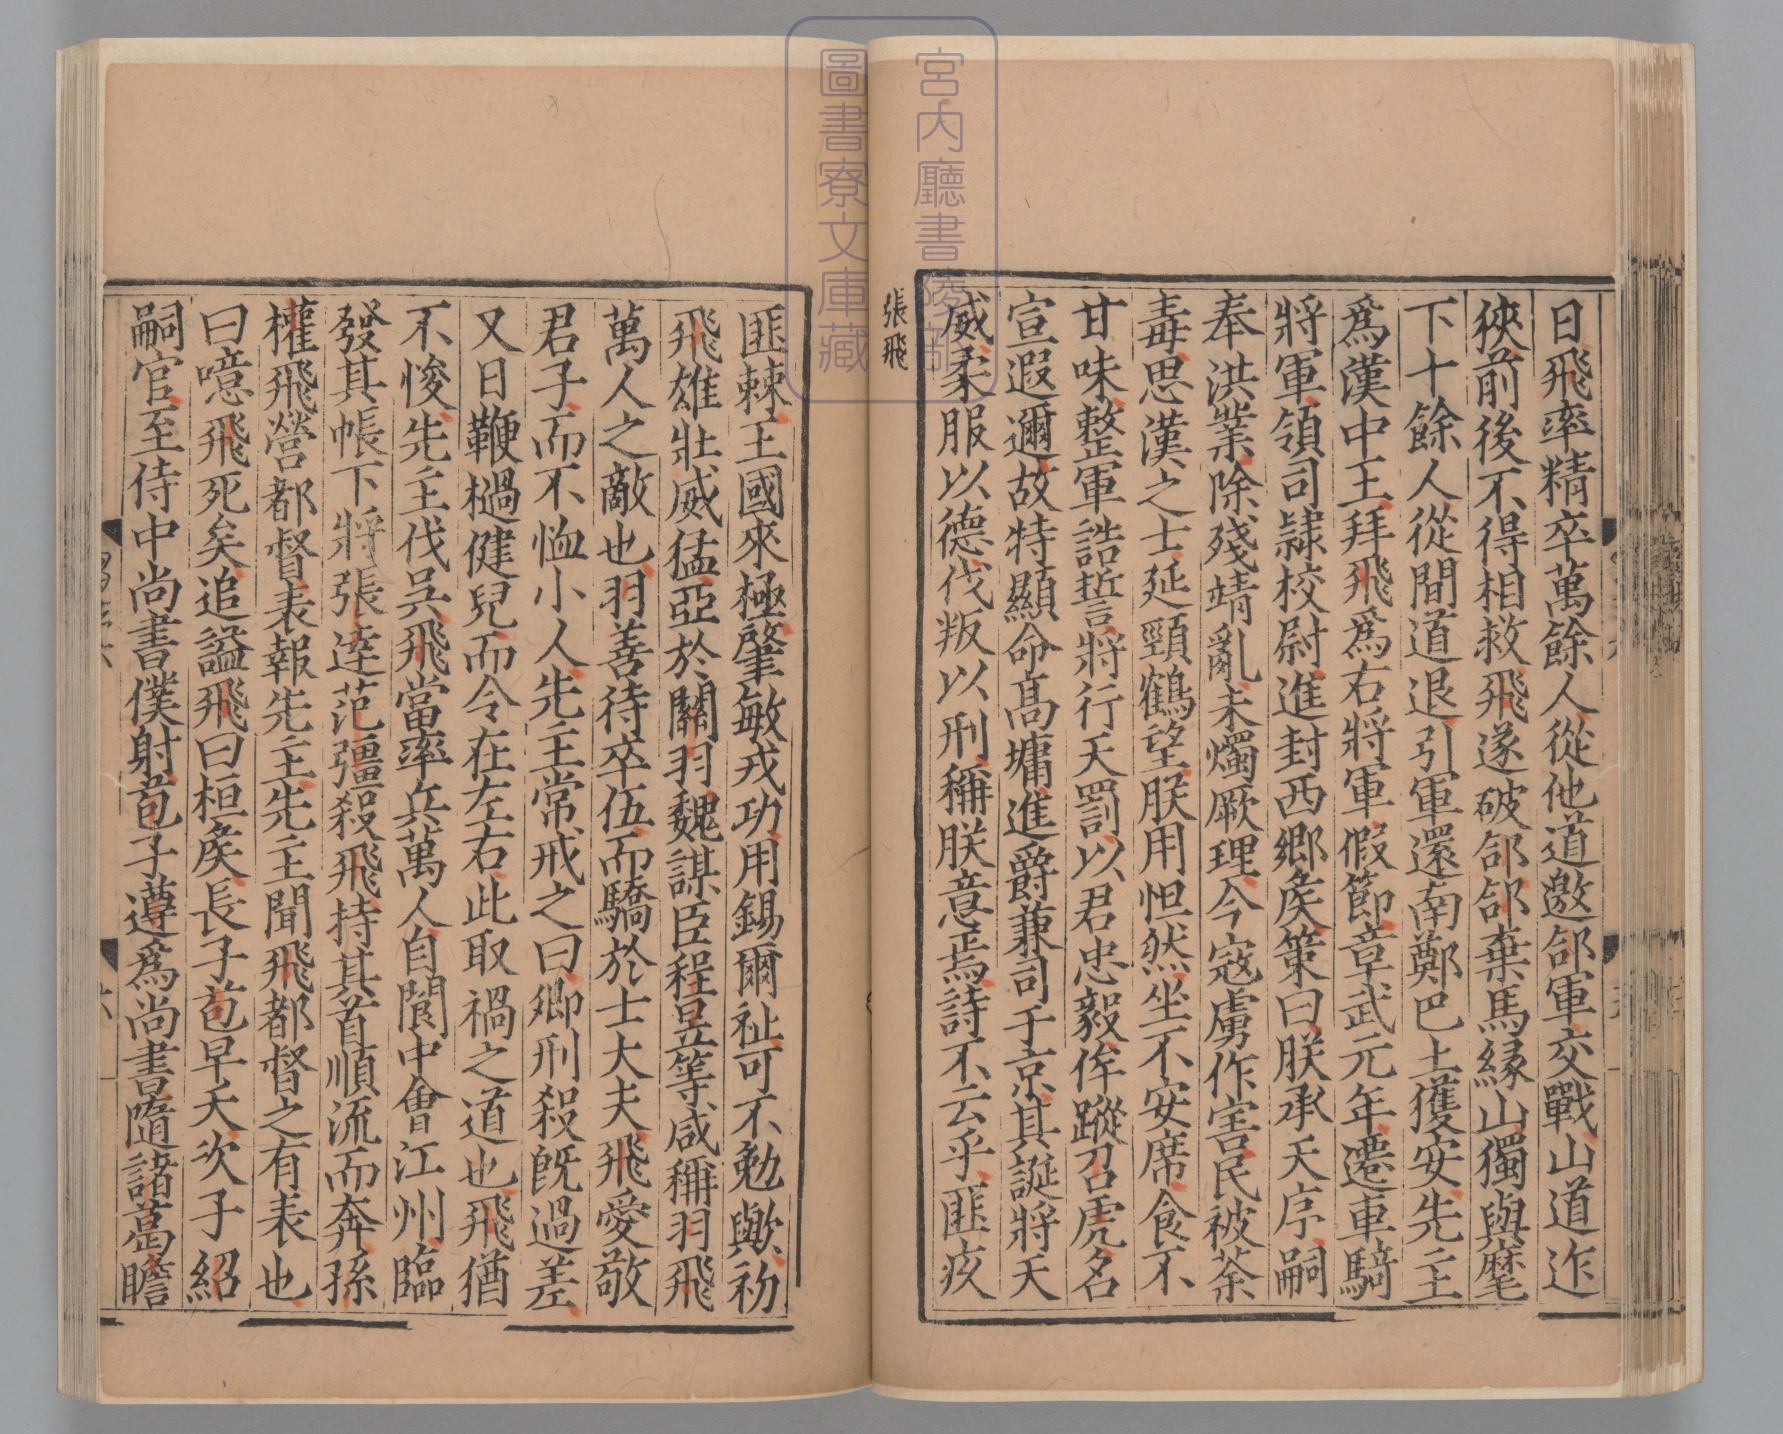 日飛率精卒萬餘人從他道邀郃軍交戰山道迮
狹前後不得相救飛遂破郃郃棄馬緣山獨與麾
下十餘人從間道退引軍還南鄭巴土獲安先主
爲漢中王拜飛爲右將軍假節章武元年遷車騎
將軍領司隸校尉進封西鄉矦策曰朕承天序嗣
奉洪業除殘靖亂未燭厥理今寇虜作害民被荼
毒思漢之士延頸鶴望朕用怛然坐不安席食不
甘味整軍誥誓將行天罰以君忠毅侔蹤召虎名
宣遐邇故特顯命高墉進爵兼司于京其誕將天
威柔服以德伐叛以刑稱朕意焉詩不云乎匪疚
張飛
匪棘王國來極肇敏戎功用錫爾祉可不勉歟初
飛雄壯威猛亞於關羽魏謀臣程昱等咸稱羽飛
萬人之敵也羽善待卒伍而驕於士大夫飛愛敬
君子而不恤小人先主常戒之曰卿刑殺旣過差
又日鞭檛健兒而令在左右此取禍之道也飛猶
不悛先主伐吳飛當率兵萬人自閬中會江州臨
發其帳下將張逹范彊殺飛持其首順流而奔孫
權飛營都督表報先主先主聞飛都督之有表也
曰噫飛死矣追謚飛曰桓矦長子苞早夭次子紹
嗣官至侍中尚書僕射苞子遵爲尚書隨諸葛瞻
宮内廳書陵部
圖書寮文庫藏